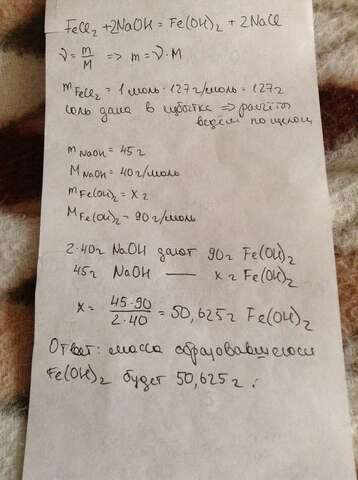 FeCl₂ + 2NaOH = Fe(OH)₂ + 2NaCl
ν = m/M => m = ν·M
m FeCl₂ = 1 моль · 127 г/моль = 127 г
соль дана в избытке => расчёт
ведём по щелочи
m NaOH = 45 г
M NaOH = 40 г/моль
m Fe(OH)₂ = x г
M Fe(OH)₂ = 90 г/моль
2·40 г NaOH дают 90 г Fe(OH)₂
45 г NaOH — x г Fe(OH)₂
x = 45·90 / 2·40 = 50,625 г Fe(OH)₂
Ответ: масса образовавшегося
Fe(OH)₂ будет 50,625 г.